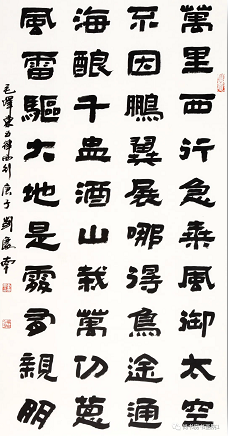 萬里西行急乘風御太空
不因鵬翼展哪得鳥途通
海釀千盅酒山栽萬仞蔥
風雷驅大地是處有親朋
毛澤東五律西行庚子劉